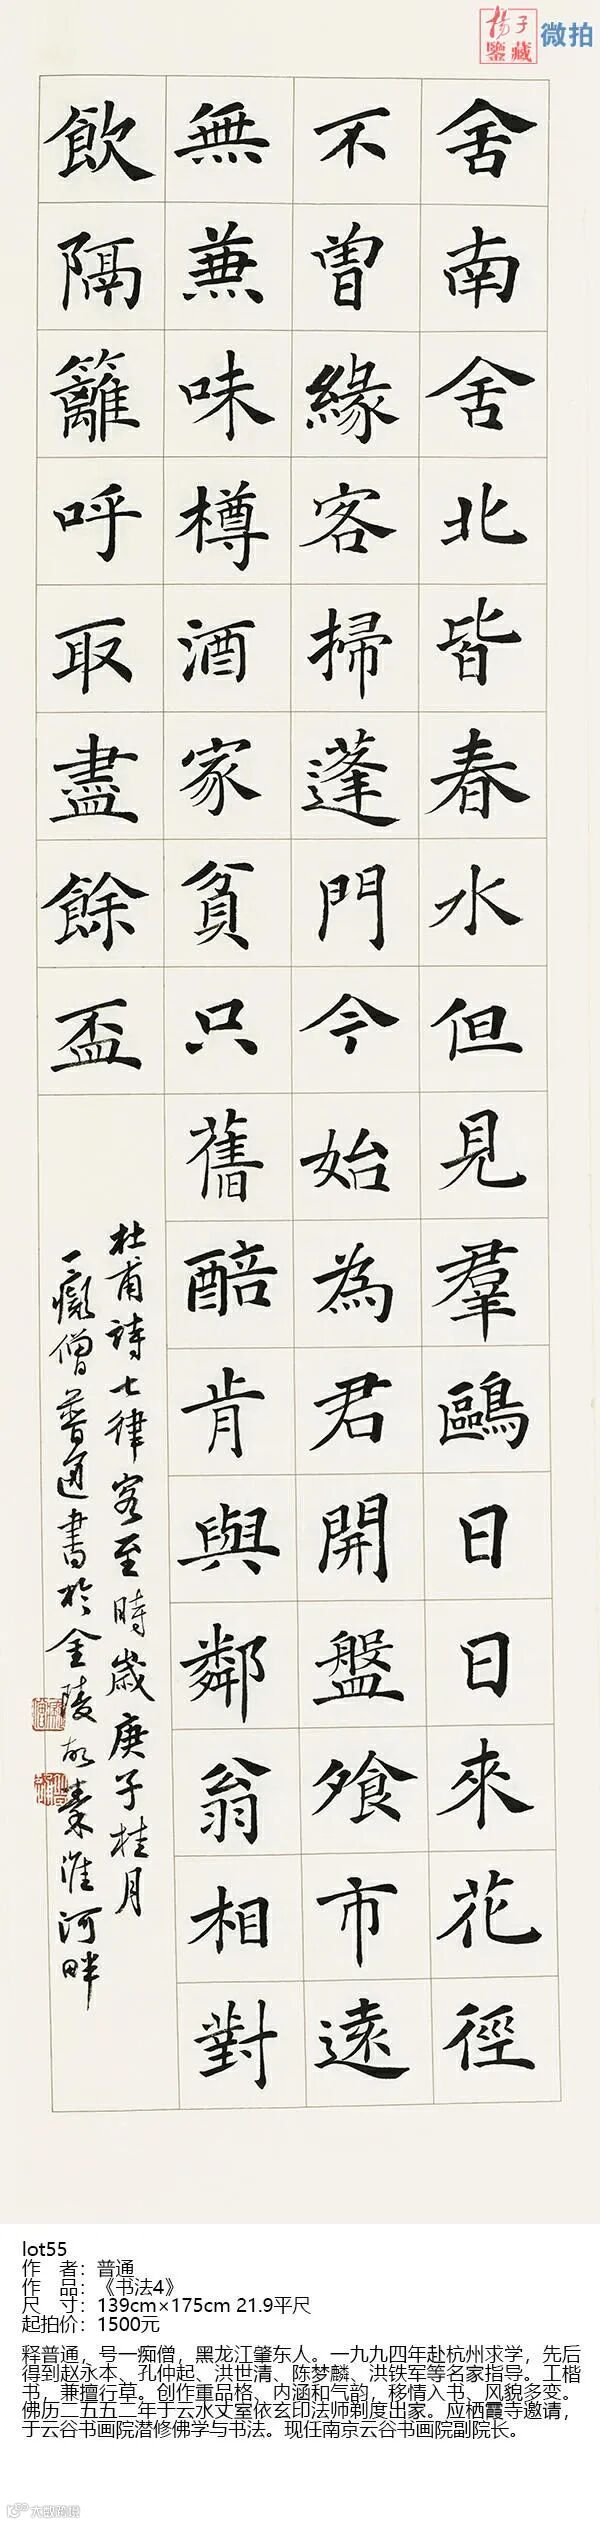 揚子鑒藏
微拍
舍南舍北皆春水但見羣鷗日日來花徑
不曾緣客掃蓬門今始為君開盤飧市遠
無兼味樽酒家貧只舊醅肯與鄰翁相對
飲隔籬呼取盡餘盃
杜甫詩七律客至時歲庚子桂月
一癡僧普通書於金陵古秦淮河畔
lot55
作 者：普通
作 品：《书法4》
尺 寸：139cm×175cm 21.9平尺
起拍价：1500元
释普通，号一痴僧，黑龙江肇东人。一九九四年赴杭州求学，先后
得到赵永本、孔仲起、洪世清、陈梦麟、洪铁军等名家指导。工楷
书，兼擅行草。创作重品格、内涵和气韵，移情入书、风貌多变。
佛历二五五二年于云水丈室依玄印法师剃度出家。应栖霞寺邀请，
于云谷书画院潜修佛学与书法。现任南京云谷书画院副院长。
大歐跨境